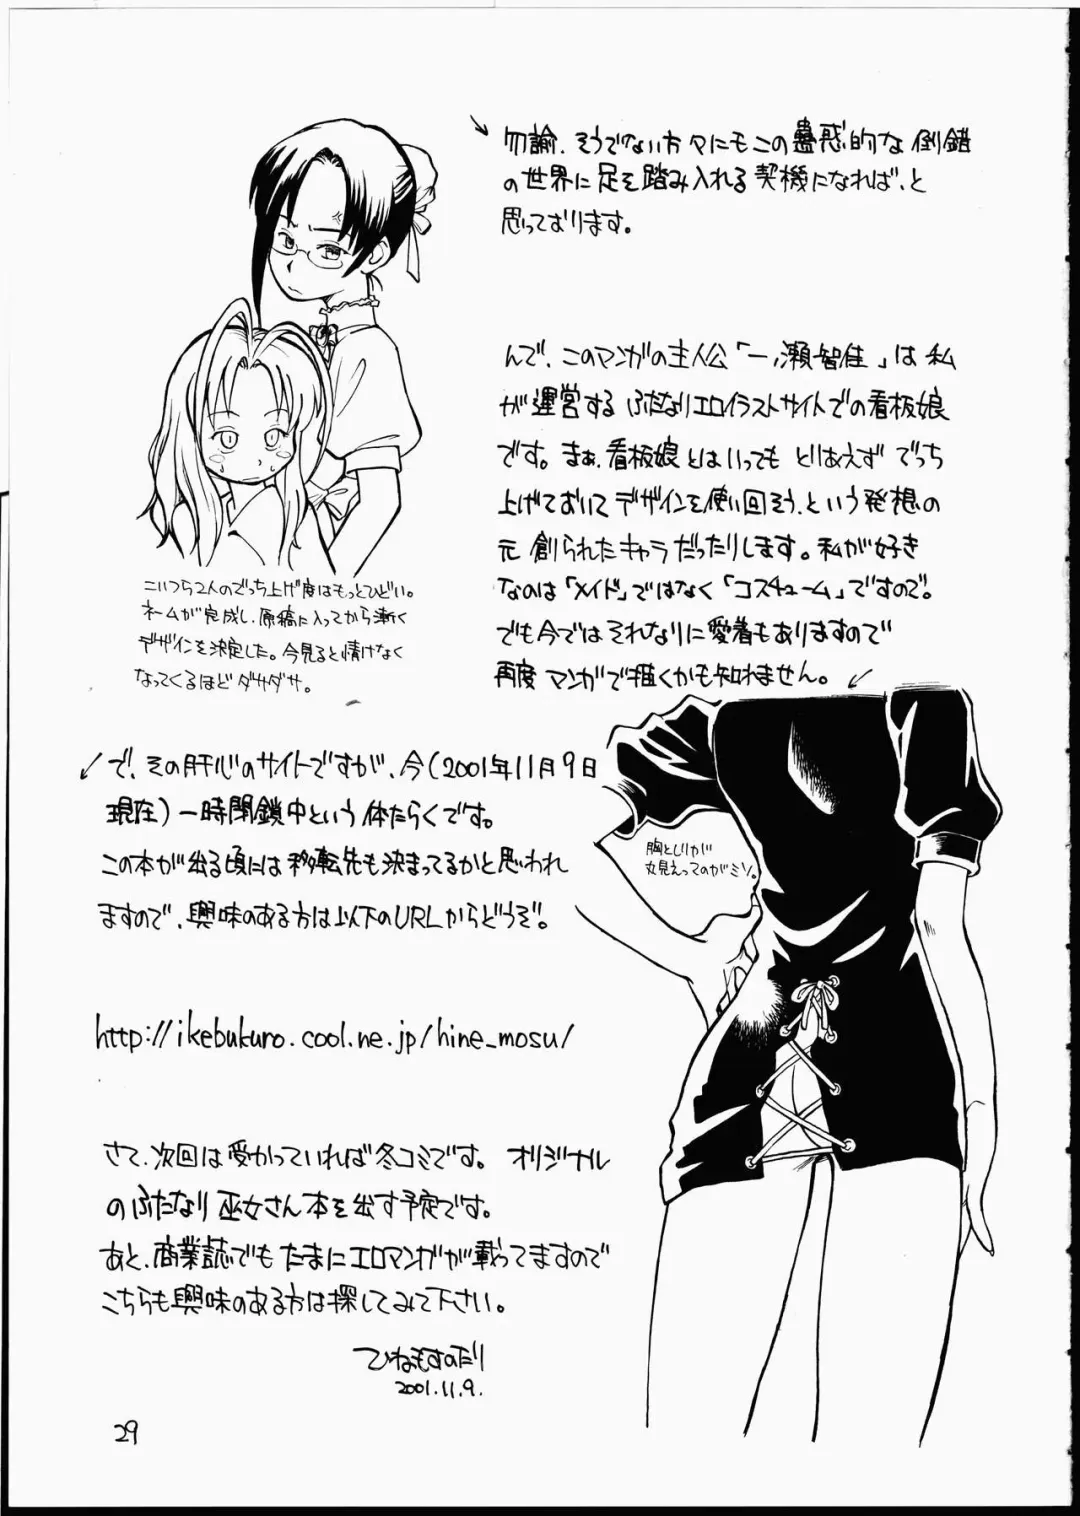 勿論、そうでない方々にもこの蠱惑的な倒錯
の世界に足を踏み入れる契機になれば、と
思っております。
んで、このマンガの主人公「一ノ瀬智佳」は私
が運営するふたなりエロイラストサイトでの看板娘
です。まぁ、看板娘とはいってもとりあえずでっち
上げておいてデザインを使い回そう、という発想の
元創られたキャラだったりします。私が好き
なのは「メイド」ではなく「コスチューム」ですので。
でも今ではそれなりに愛着もありますので
再度マンガで描くかも知れません。
こいつら2人のでっち上げ度はもっとひどい。
ネームが完成し、原稿に入ってから漸く
デザインを決定した。今見ると情けなく
なってくるほどダサダサ。
で、その肝心のサイトですが、今(2001年11月9日
現在)一時閉鎖中という体たらくです。
この本が出る頃には移転先も決まってるかと思われ
ますので、興味のある方は以下のURLからどうぞ。
胸としりが
丸見えってのがミソ。
http://ikebukuro.cool.ne.jp/hine_mosu/
さて、次回は受かっていれば冬コミです。オリジナル
のふたなり巫女さん本を出す予定です。
あと、商業誌でもたまにエロマンガが載ってますので
こちらも興味のある方は探してみて下さい。
ひねもすのたり
2001.11.9.
29